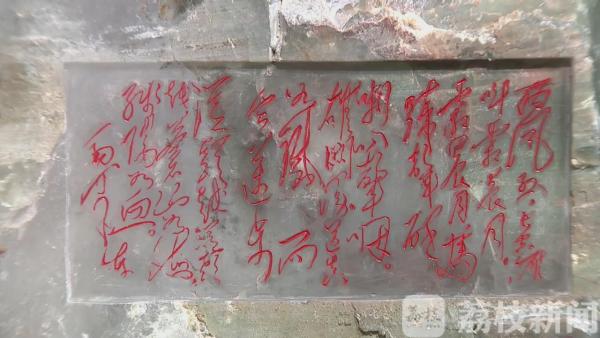 西风烈。长空雁
叫霜晨月。
霜晨月马
蹄声碎
喇叭声咽。
雄关漫道真
如铁 而
今迈步
从头越从头
越苍山如海
残阳如血。
毛泽东
荔枝新闻